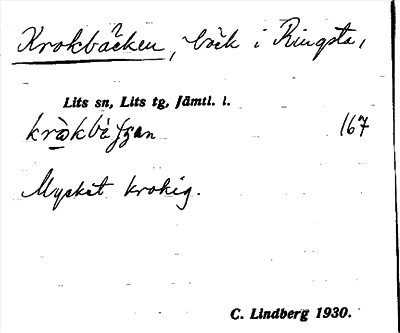 Krokbäcken, bäck i Ringsta,
Lits sn, Lits tg, Jämtl. l.
167
Mycket krokig.
C. Lindberg 1930.